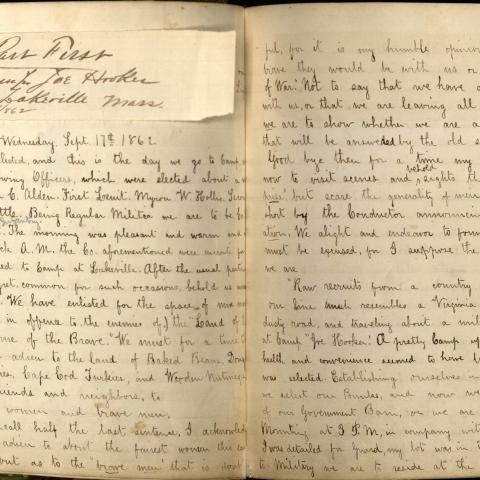 Part First
Camp Joe Hooker
Lakeville Mass.
1862
Wednesday, Sept. 17th 1862
listed, and this is the day we go to Camp,
owing Officers, which were elected about a
C. Alden. First Lieut. Myron W. Hollis. Seco
ttle. Being Regular Militia we are to be
The morning was pleasant and warm and
ck A.M. the Co. aforementioned were
ed to Camp at Lakeville. After the usual parting
common for such occasions, behold us
We have enlisted for the space of nine mon
in offence to the enemies of, the "Land of
ome of the Brave. We must for a time
adieu to the land of Baked Beans,
ies, Cape Cod Turkies, and Wooden Nutmegs
riends and neighbors, to
women and brave men.
recall half the last sentence, I acknowledg
adieu to about the fairest women this
but as to the "brave men" that is dou
ful, for it is my humble opinion
brave they would be with us or
of War. Not to say that we have
with us, or that we are leaving all
we are to show whether we are
that will be answered by the old
Good bye then for a time my
now to visit scenes and behold sights th
but scare the generality of
short by the Conductor announcin
ation. We alight and endeavor to form
must be excused, for I suppose the
we are
"Raw recruits from a country
our line much resembles a Virginia
dusty road, and traveling about a mil
at Camp "Joe Hooker." A pretty Camp
health and convenience seemed to have b
was selected. Establishing ourselves
we select our Bunks, and now we
of our Government Barn, or we are
Mounting at 3 P.M, in company with
I was detailed for Guard, my lot was in t
to Military we are to reside at the